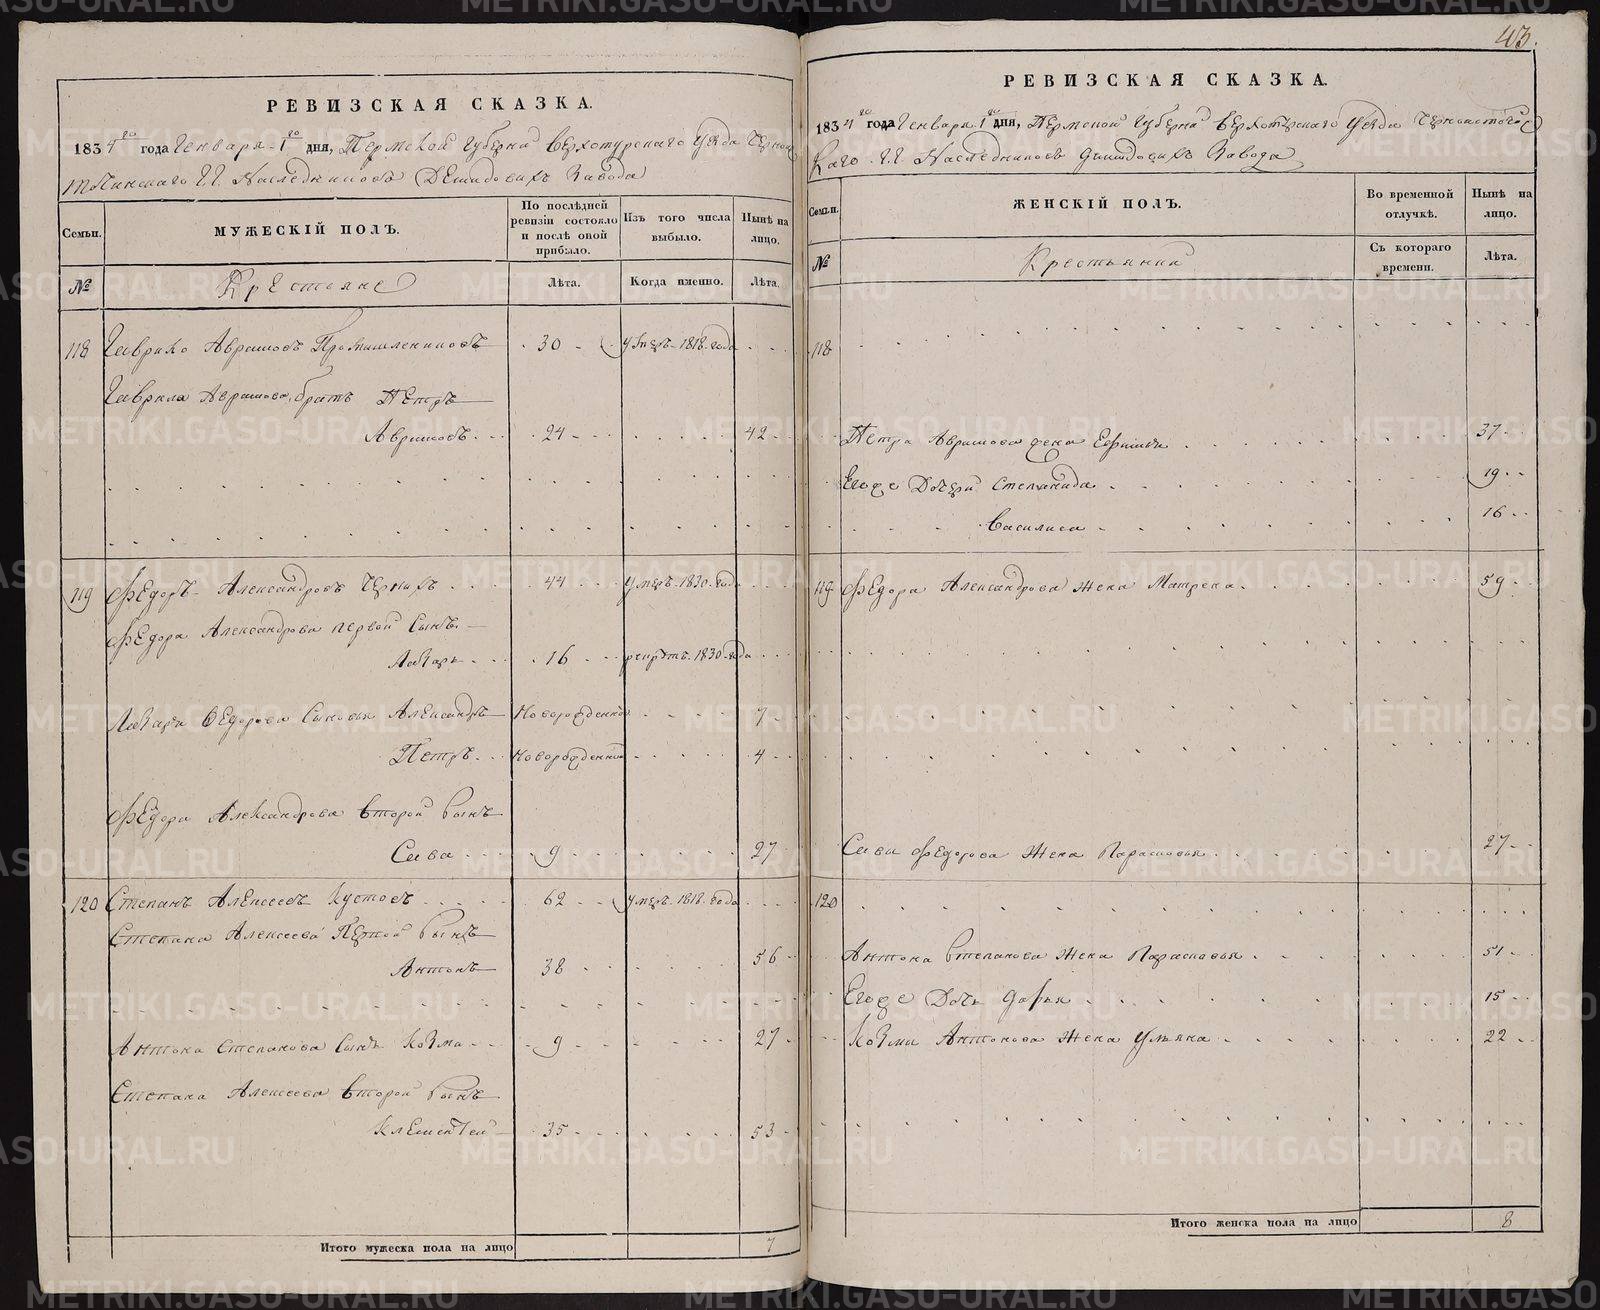 РЕВИЗСКАЯ СКАЗКА.
1834го года Генваря 1го дня, Пермской Губернии Верхотурскаго Уезда Черноис
точинскаго Г.Г. Наследниковъ Демидовыхъ Завода
Семьи.
МУЖЕСКІЙ ПОЛЪ.
По послѣдней ревизіи состояло и послѣ оной прибыло.
Изъ того числа выбыло.
Нынѣ на лицо.
№
Крестьяне
Лѣта.
Когда именно.
Лѣта.
118 Гаврило Аврамовъ Промышлениковъ 30 умеръ 1818 года
Гаврила Аврамова братъ Петръ
Аврамовъ 24 42
119 Федоръ Александровъ Черныхъ 44 умеръ 1830 года
Федора Александрова первой Сынъ
Лазарь 16 рекрутъ 1830 года
Лазаря Федорова Сыновья Александръ Новорожденной 7
Петръ Новорожденной 4
Федора Александрова второй Сынъ
Сава 9 27
120 Степанъ Алексеевъ Кустовъ 62 умеръ 1818 года
Степана Алексеева Первой Сынъ
Антонъ 38 56
Антона Степанова Сынъ Козма 9 27
Степана Алексеева второй Сынъ
Климентей 35 53
Итого мужеска пола на лицо 7
43.
РЕВИЗСКАЯ СКАЗКА.
1834го года Генваря 1го дня, Пермской Губернии Верхотурскаго Уезда Черноисточинс
каго Г.Г. Наследниковъ Демидовыхъ Завода
Семьи.
ЖЕНСКІЙ ПОЛЪ.
Во временной отлучкѣ.
Нынѣ на лицо.
№
Крестьянки
Съ котораго времени.
Лѣта.
118
Петра Аврамова жена Ефимья 37
Егоже Дочери Степанида 19
Василиса 16
119 Федора Александрова Жена Матрена 59
Савы Федорова Жена Парасковья 27
120
Антона Степанова Жена Парасковья 51
Егоже Дочь Дарья 15
Козмы Антонова Жена Ульяна 22
Итого женска пола на лицо 8
METRIKI.GASO-URAL.RU